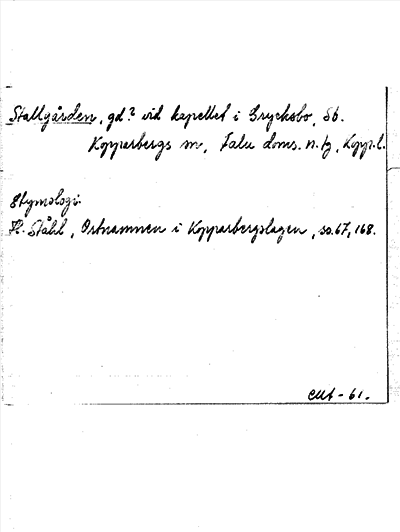 Stallgården, gd? vid kapellet i Grycksbo, St.
Kopparbergs sn, Falu doms. n. tg, Kopp.l.
Etymologi:
H. Ståhl, Ortnamnen i Kopparbergslagen, ss. 67, 168.
CMA - 61.